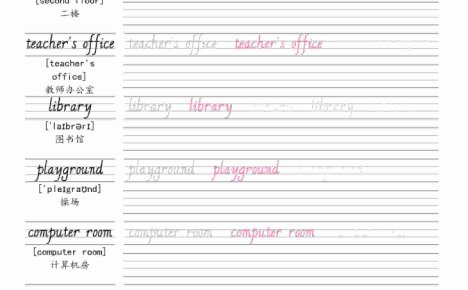 [second floor]
二楼
teacher's office teacher's office teacher's office
[teacher's
office]
教师办公室
library library library library
['laIbrərI]
图书馆
playground playground playground
['pleIgraʊnd]
操场
computer room computer room computer room
[computer room]
计算机房